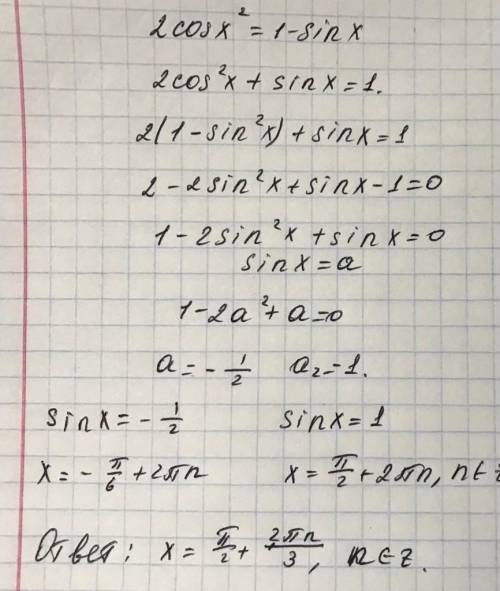 2cosx² = 1-sinx
2cos²x + sinx = 1.
2(1-sin²x) + sinx = 1
2 - 2sin²x + sinx - 1 = 0
1 - 2sin²x + sinx = 0
sinx = a
1 - 2a² + a = 0
a = - 1/2 a₂ = 1.
sinx = - 1/2 sinx = 1
x = - π/6 + 2πn x = π/2 + 2πn, n∈
Ответ: x = π/2 + 2πn/3, n∈z.